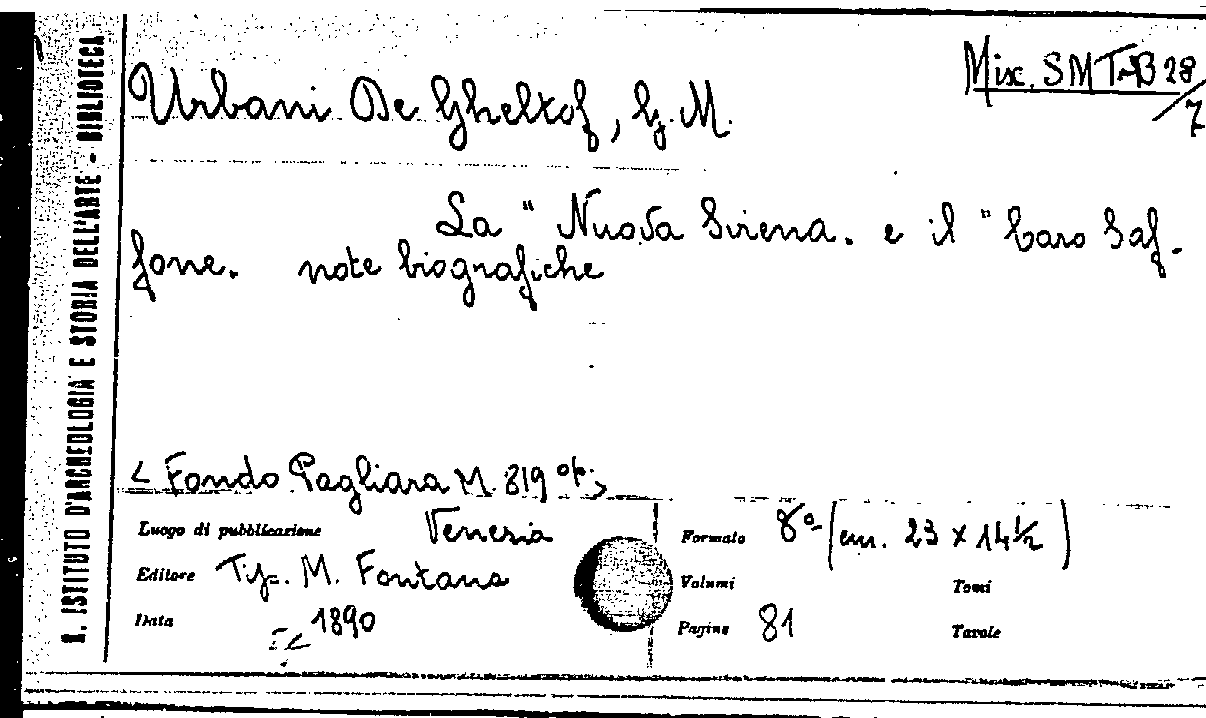 R. ISTITUTO D'ARCHEOLOGIA E STORIA DELL'ARTE - BIBLIOTECA
Misc. SMT-B 28/7
Urbani De Gheltof, G. M.
La "Nuova Sirena. e il "Caro Saf-
fone. note biografiche
< Fondo Pagliara M. 819 op. >
Luogo di pubblicazione Venezia
Formato 8° (cm. 23 x 14½)
Editore Tip. M. Fontana
Volumi Tomi
Data 1890
Pagine 81 Tavole